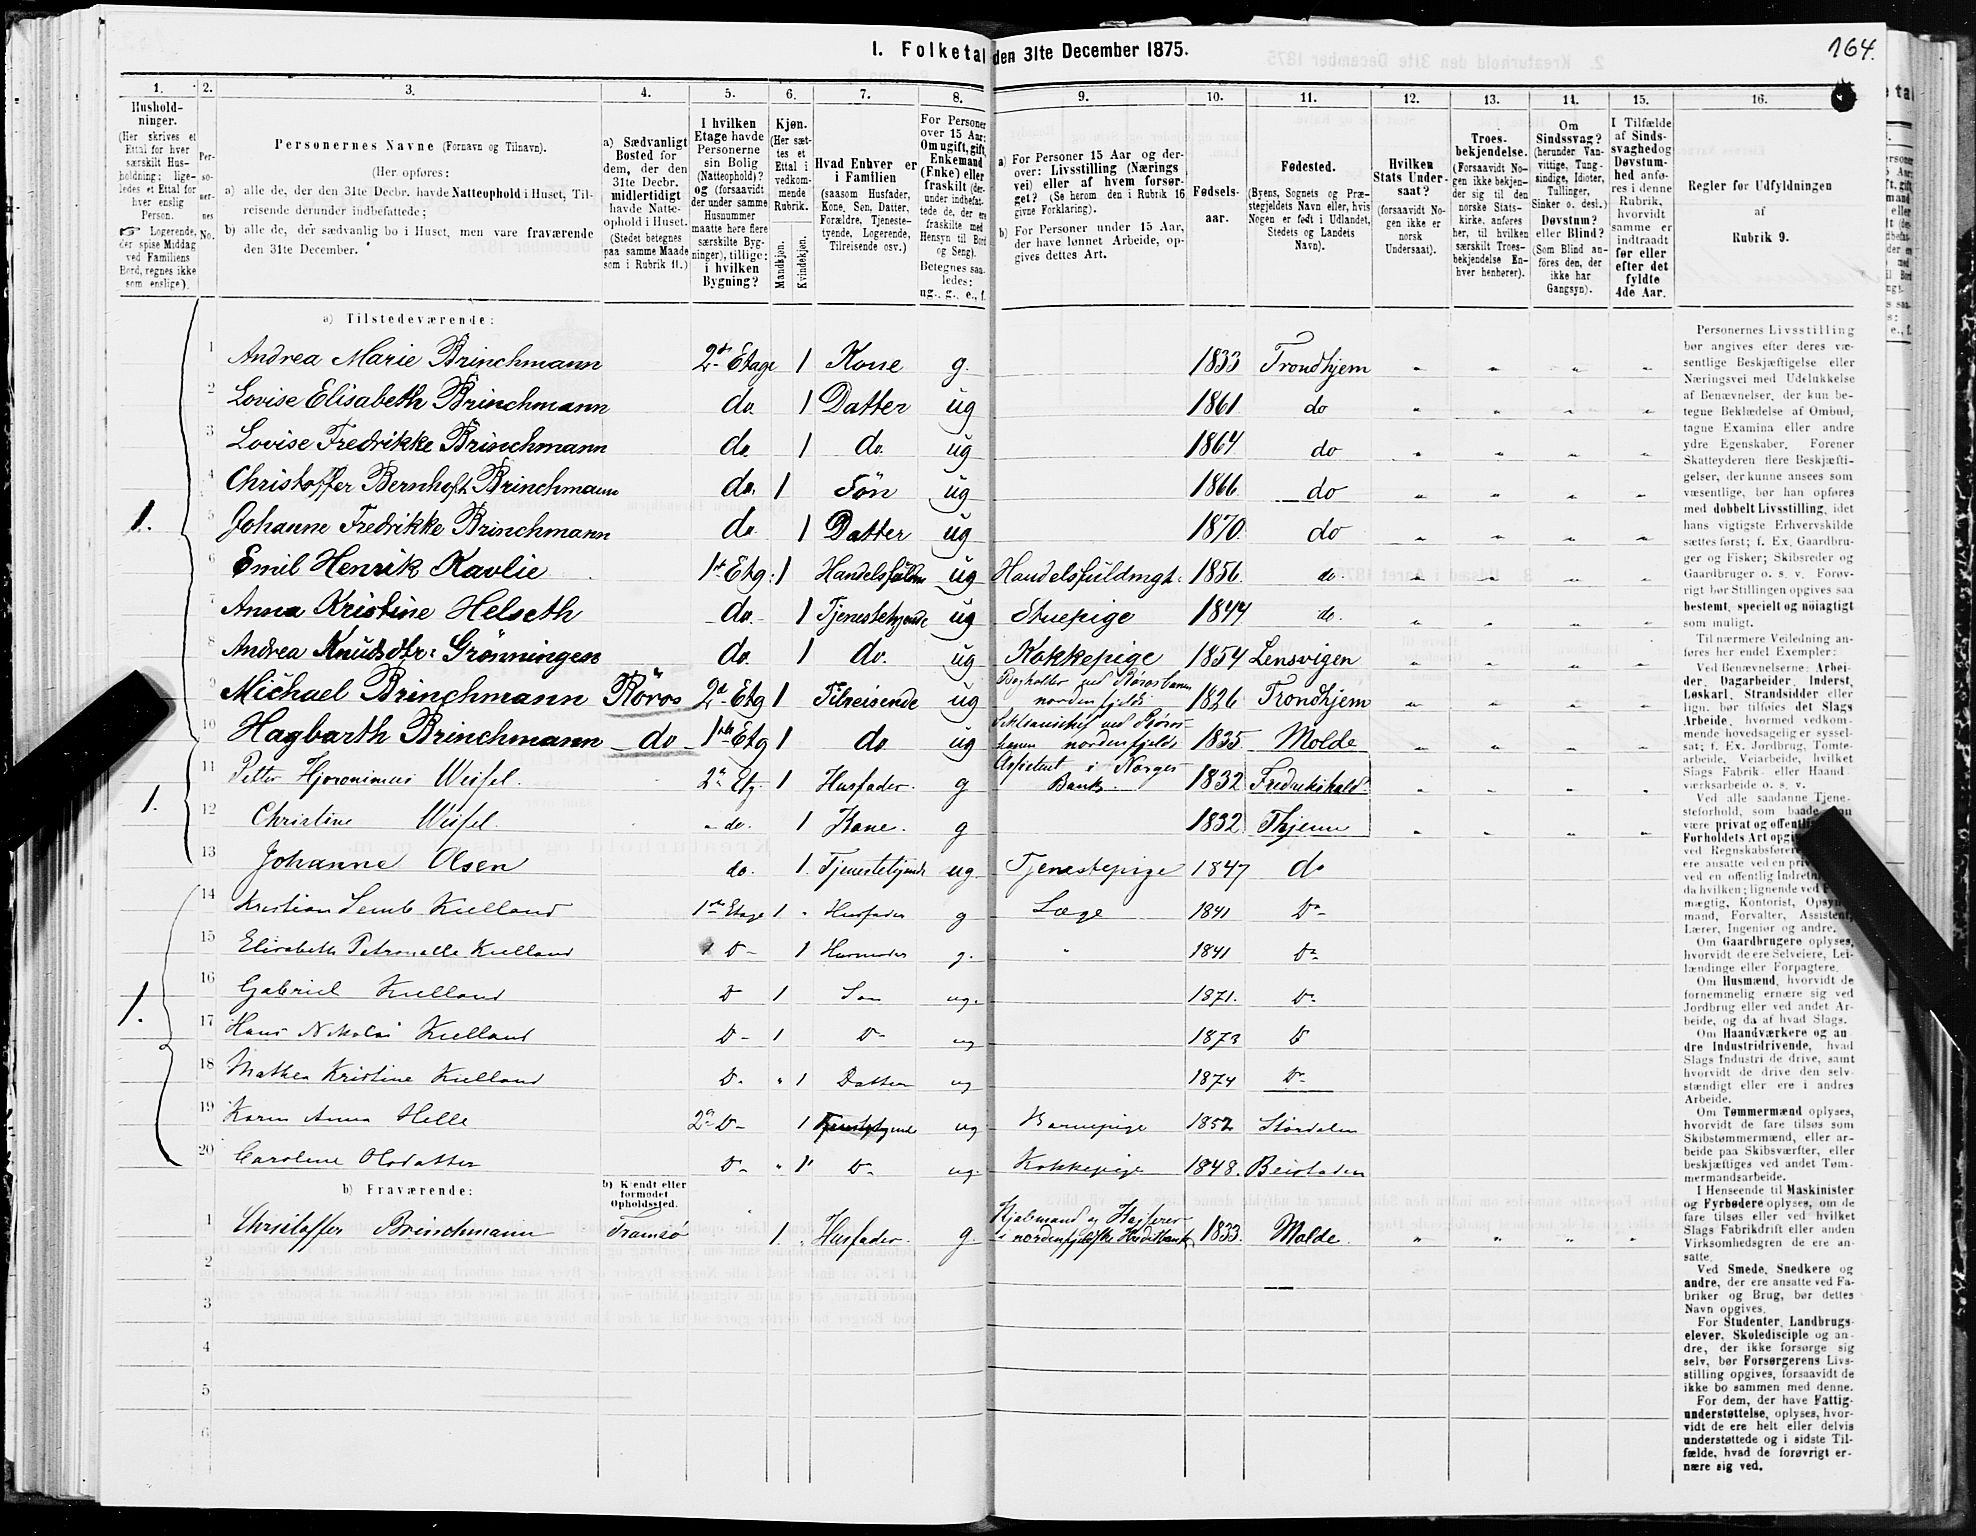 164.
I. Folketal den 31te December 1875.
1. 2. 3. 4. 5. 6. 7. 8. 9. 10. 11. 12. 13. 14. 15. 16.
Hushold-
ninger.
(Her skrives et
Ettal for hver
særskilt Hus-
holdning; lige-
ledes et Ettal for
hver enslig
Person.
☞ Logerende,
der spise Middag
ved Familiens
Bord, regnes ikke
som enslige).
Per-
so-
ner-
nes
No.
Personernes Navne (Fornavn og Tilnavn).
(Her opføres:
a) alle de, der den 31te Decbr. havde Natteophold i Huset, Til-
reisende derunder indbefattede;
b) alle de, der sædvanlig bo i Huset, men vare fraværende
den 31te December.
a) Sædvanligt
Bosted for
dem, der den
31te Decbr.
midlertidigt
havde Natte-
ophold i Huset.
(Stedet betegnes
paa samme Maade
som i Rubrik 11.)
I hvilken
Etage havde
Personerne
sin Bolig
(Natteophold)?
og (forsaavidt
der under samme
Husnummer
maatte høre flere
særskilte Byg-
ninger), tillige:
i hvilken
Bygning?
Kjøn.
(Her sæt-
tes et
Ettal i
vedkom-
mende
Rubrik.
Mandkjøn.
Kvindekjøn.
Hvad Enhver er
i Familien
(saasom Husfader,
Kone, Søn, Datter,
Forældre, Tjeneste-
tyende, Logerende,
Tilreisende osv.)
For Personer
over 15 Aar:
Om ugift, gift,
Enkemand
(Enke) eller
fraskilt (der-
under indbefat-
tede de, der ere
fraskilte med
Hensyn til Bord
og Seng).
Betegnes saa-
ledes:
ug., g., e., f.
a) For Personer 15 Aar og der-
over: Livsstilling (Nærings
vei) eller af hvem forsør-
get? (Se herom den i Rubrik 16
givne Forklaring).
b) For Personer under 15 Aar,
der have lønnet Arbeide, op-
gives dettes Art.
Fødsels-
aar.
Fødested.
(Byens, Sognets og Præ-
stegjeldets Navn eller, hvis
Nogen er født i Udlandet,
Stedets og Landets
Navn).
Hvilken
Stats Under-
saat?
(forsaavidt No-
gen ikke er
norsk
Undersaat).
Troes-
bekjendelse.
(Forsaavidt No-
gen ikke bekjen-
der sig til den
norske Stats-
kirke, anføres
her, til hvilken
særskilt Troes-
bekjendelse En-
hver henhører).
Om
Sindssvag?
(herunder Van-
vittige, Tung-
sindige, Idioter,
Tullinger,
Sinker o. desl.)
Døvstum?
eller Blind?
(Som Blind an-
føres den, der
ikke har
Gangsyn).
I Tilfælde
af Sinds-
svaghed og
Døvstum-
hed anfø-
res i denne
Rubrik,
hvorvidt
samme er
indtraadt
før eller
efter det
fyldte
4de Aar.
Regler for Udfyldningen
af
Rubrik 9.
a) Tilstedeværende:
1 Andrea Marie Brinchmann 2den Etage 1 Kone g. 1833 Trondhjem
2 Lovise Elisabeth Brinchmann do. 1 Datter ug 1861 do
3 Lovise Fredrikke Brinchmann do. 1 do. ug 1864 do
4 Christoffer Bernhoft Brinchmann do. 1 Søn ug 1866 do
1. 5 Johanne Fredrikke Brinchmann do. 1 Datter ug 1870 do
6 Emil Henrik Kavlie 1ste Etg: 1 Handelsfuldm ug Handelsfuldmgt: 1856 do.
7 Anna Kristine Helseth do. 1 Tjenestetyende ug Stuepige 1844 do.
8 Andrea Knudsdtr. Grønningen do. 1 do. ug Kokkepige 1854 Lensvigen
9 Michael Brinchmann Røros 2d Etg 1 Tilreisende ug Bogholder ved Rørosbanen
nordenfjelds 1826 Trondhjem
10 Hagbarth Brinchmann do 1ste Etg 1 do ug ved Røros-
banen nordenfjelds 1835 Molde
1. 11 Petter Hjeronimus Weisel. 2n Etg. 1 Husfader. g Assistent i Norges
Bank. 1832 Fredrikshald
12 Christine Weisel. do. 1 Kone. g 1832 Thjem
13 Johanne Olsen do. 1. Tjenestetyende ug. Tjenestepige 1847 do
14 Kristian Lemb Kielland 1ste Etage 1 Husfader g Læge 1841 Do
15 Elisabeth Petronelle Kielland Do 1 Husmoder g. 1841 Do
1. 16 Gabriel Kielland Do 1 Søn ug. 1871. Do
17 Hans Nikolai Kielland Do 1 Do ug 1873 Do
18 Mathea Kristine Kielland Do 1 Datter ug 1874 Do
19 Karen Anna Helle 2n Do 1 Tjenestetyende ug Barnepige 1852 Størdalen
20 Caroline Olsdatter Do 1 Do ug. Kokkepige 1848. Beistaden
b) Fraværende:
b) Kjendt eller
formodet
Opholdssted.
1 Christoffer Brinchmann Tromsø 1 Husfader. g. Kjøbmand og
i nordenfjeldske Kreditbank 1833. Molde.
2
3
4
5
6
Personernes Livsstilling
bør angives efter deres væ-
sentlige Beskjæftigelse eller
Næringsvei med Udelukkelse
af Benævnelser, der kun be-
tegne Beklædelse af Ombud,
tagne Examina eller andre
ydre Egenskaber. Forener
Skatteyderen flere Beskjæfti-
gelser, der kunne ansees som
væsentlige, bør han opføres
med dobbelt Livsstilling, idet
hans vigtigste Erhvervskilde
sættes først; f. Ex. Gaardbru-
ger og Fisker; Skibsreder og
Gaardbruger o. s. v. Forøv-
rigt bør Stillingen opgives saa
bestemt, specielt og nøiagtigt
som muligt.
Til nærmere Veiledning an-
føres her endel Exempler:
Ved Benævnelserne: Arbei-
der, Dagarbeider, Inderst,
Løskarl, Strandsidder eller
lign. bør tilføies det Slags
Arbeide, hvormed vedkom-
mende hovedsagelig er syssel-
sat; f. Ex. Jordbrug, Tomte-
arbeide, Veiarbeide, hvilket
Slags Fabrik- eller Haand
værksarbeide o. s. v.
Ved alle saadanne Tjene-
steforhold, som baade
være privat og offentlig
Forholdets Art opgi
ved Regnskabsføre
ere ansatte ved en pri
ved en offentlig Indret
da hvilken; lignende ved
mægtig, Kontorist, Opsyns-
mand, Forvalter, Assistent,
Lærer, Ingeniør og andre.
Om Gaardbrugere oplyses,
hvorvidt de ere Selveiere, Lei-
lændinge eller Forpagtere.
Om Husmænd, hvorvidt de
fornemmelig ernære sig ved
Jordbrug eller ved andet Ar-
beide, og da af hvad Slags.
Om Haandværkere og an
dre Industridrivende, hvad
Slags Industri de drive, samt
hvorvidt de drive den selv-
stændigt eller ere i andres
Arbeide.
Om Tømmermænd oplyses,
hvorvidt de fare tilsøs som
Skibstømmermænd, eller ar-
beide paa Skibsværfter, eller
beskjæftiges ved andet Tøm-
mermandsarbeide.
I Henseende til Maskinister
og Fyrbødere oplyses, om de
fare tilsøs eller ved hvilket
Slags Fabrikdrift eller anden
Virksomhedsgren de ere an-
satte.
Ved Smede, Snedkere og
andre, der ere ansatte ved Fa-
briker og Brug, bør dettes
Navn opgives.
For Studenter, Landbrugs-
elever, Skoledisciple og an-
dre, der ikke forsørge sig
selv, bør Forsørgerens Livs-
stilling opgives, forsaavidt de
ikke bo sammen med denne.
For dem, der have Fattig-
understøttelse, oplyses, hvor-
vidt de ere helt eller delvis
understøttede og i sidste Til-
fælde, hvad de forøvrigt er-
nære sig ved.